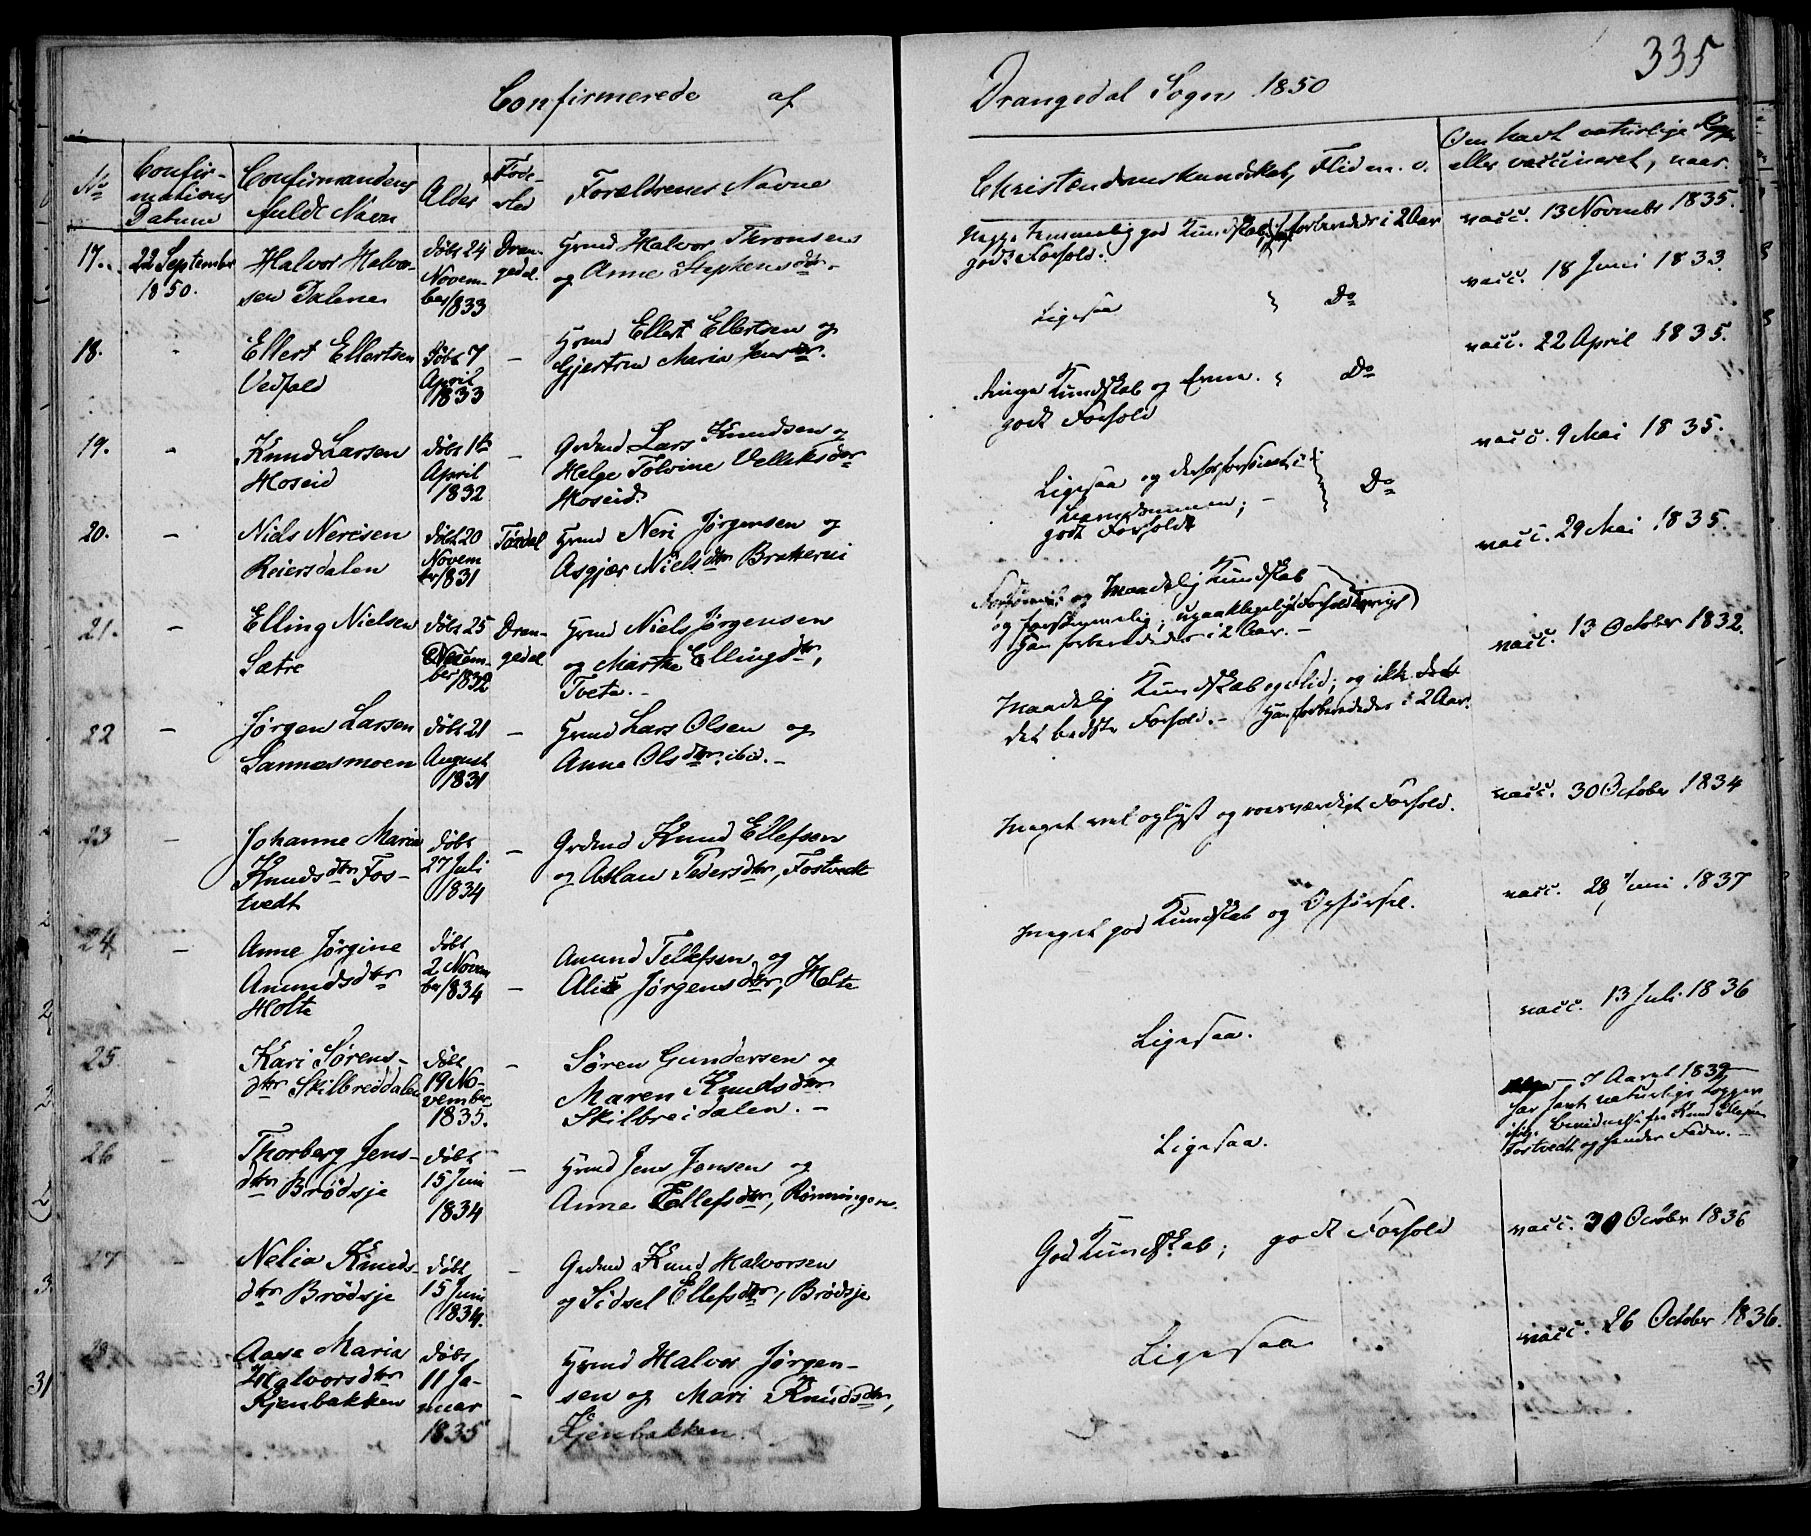 335
Confirmerede af Drangedal Sogn 1850
No
Confirmations Datum
Confirmandens fulde Navn
Alder
Føde-sted
Forældrenes Navne
Christendomskundskab, Flid m. v.
Om havt naturlige Kopper eller vaccineret, naar.
17. 22 September 1850.
Halvor Halvorsen Dalene
døbt 24 November 1833
Drangedal
Grmd Halvor Thronsen
og Anne Stephensdtr.
temmelig god Kundskab, forberedes i 2 Aar
godt Forhold.
vacc. 13 November 1835.
18. "
Ellert Ellertsen
døbt 7 April 1833
—
Grmd Ellert Ellertsen og
Gjertrud Maria Jensdtr.
Ligesaa Do
vacc. 18 Juni 1833.
19. "
Knud Larsen
Hoseid
April 1832
—
Lars Knudsen og
Helge Tolvine
Hoseid.
ringe Kundskab og Evne. Do
godt Forhold
vacc. 22 April 1835.
20. —
Niels Nerisen
Reiersdalen
døbt 20 November 1831
Tørdal
Grmd Neri Jørgensen og
Asgjær Nielsdtr
Ligesaa og
godt Forholdt
Do
vacc. 9 Mai 1835.
21. —
Elling Nielsen
Sætre
døbt 25
1832
Drangedal
Grmd Niels Jørgensen
og Marthe Ellingsdtr,
Tveta. —
og Maadelig Kundskab
Han forberededes i 2 Aar. —
vacc. 29 Mai 1835.
22 —
Jørgen Larsen
Sannesmoen
døbt 21 August 1831
—
Grmd Lars Olsen og
Anne Olsdtr. ibid. —
Maadelig Kundskab og Flid; og ikke
det bedste Forhold. — Han forberededes i 2 Aar.
vacc. 13 October 1832.
23 —
Johanne Maria
Knudsdtr Fostvedt
døbt 27 Juli 1834
—
Grdmd Knud Ellefsen
og Aslau Pedersdtr, Fostvedt
Meget vel oplyst og roesværdigt Forhold.
vacc. 30 October 1834
24 —
Anne Jørgine
Amundsdtr
Holte
døbt 2 November 1834
—
Amund Tellefsen og
Alice Jørgensdtr, Holte
Meget god Kundskab og Opførsel.
vacc. 28 Juni 1837
25. —
Kari Sørensdtr Skilbreddalen
døbt 19 November 1835.
—
Søren Gundersen og
Maren Knudsdtr
Skilbreidalen. —
Ligesaa.
vacc. 13 Juli 1836
26 —
Thorberg Jensdtr Brødsje
døbt 15 Juni 1834
—
Grmd Jens Jensen og
Anne Tellefsdtr, Rønningen.
Ligesaa.
I Aaret 1839
har havt naturlige Kopper
fra Knud Ellefsen
Fostvedt og hendes Fader. —
27
Nelia Knudsdtr Brødsje
døbt 15 Juni 1834.
—
Grdmd Knud Halvorsen
og Sidsel Ellefsdtr, Brødsje
God Kundskab; godt Forhold
vacc. 30 October 1836
28
Aase Maria
Halvorsdtr
Kjenbakken
døbt 11 Januar 1835
—
Grmd Halvor Jørgensen og Mari Knudsdtr,
Kjenbakken.
Ligesaa
vacc. 26 October 1836.